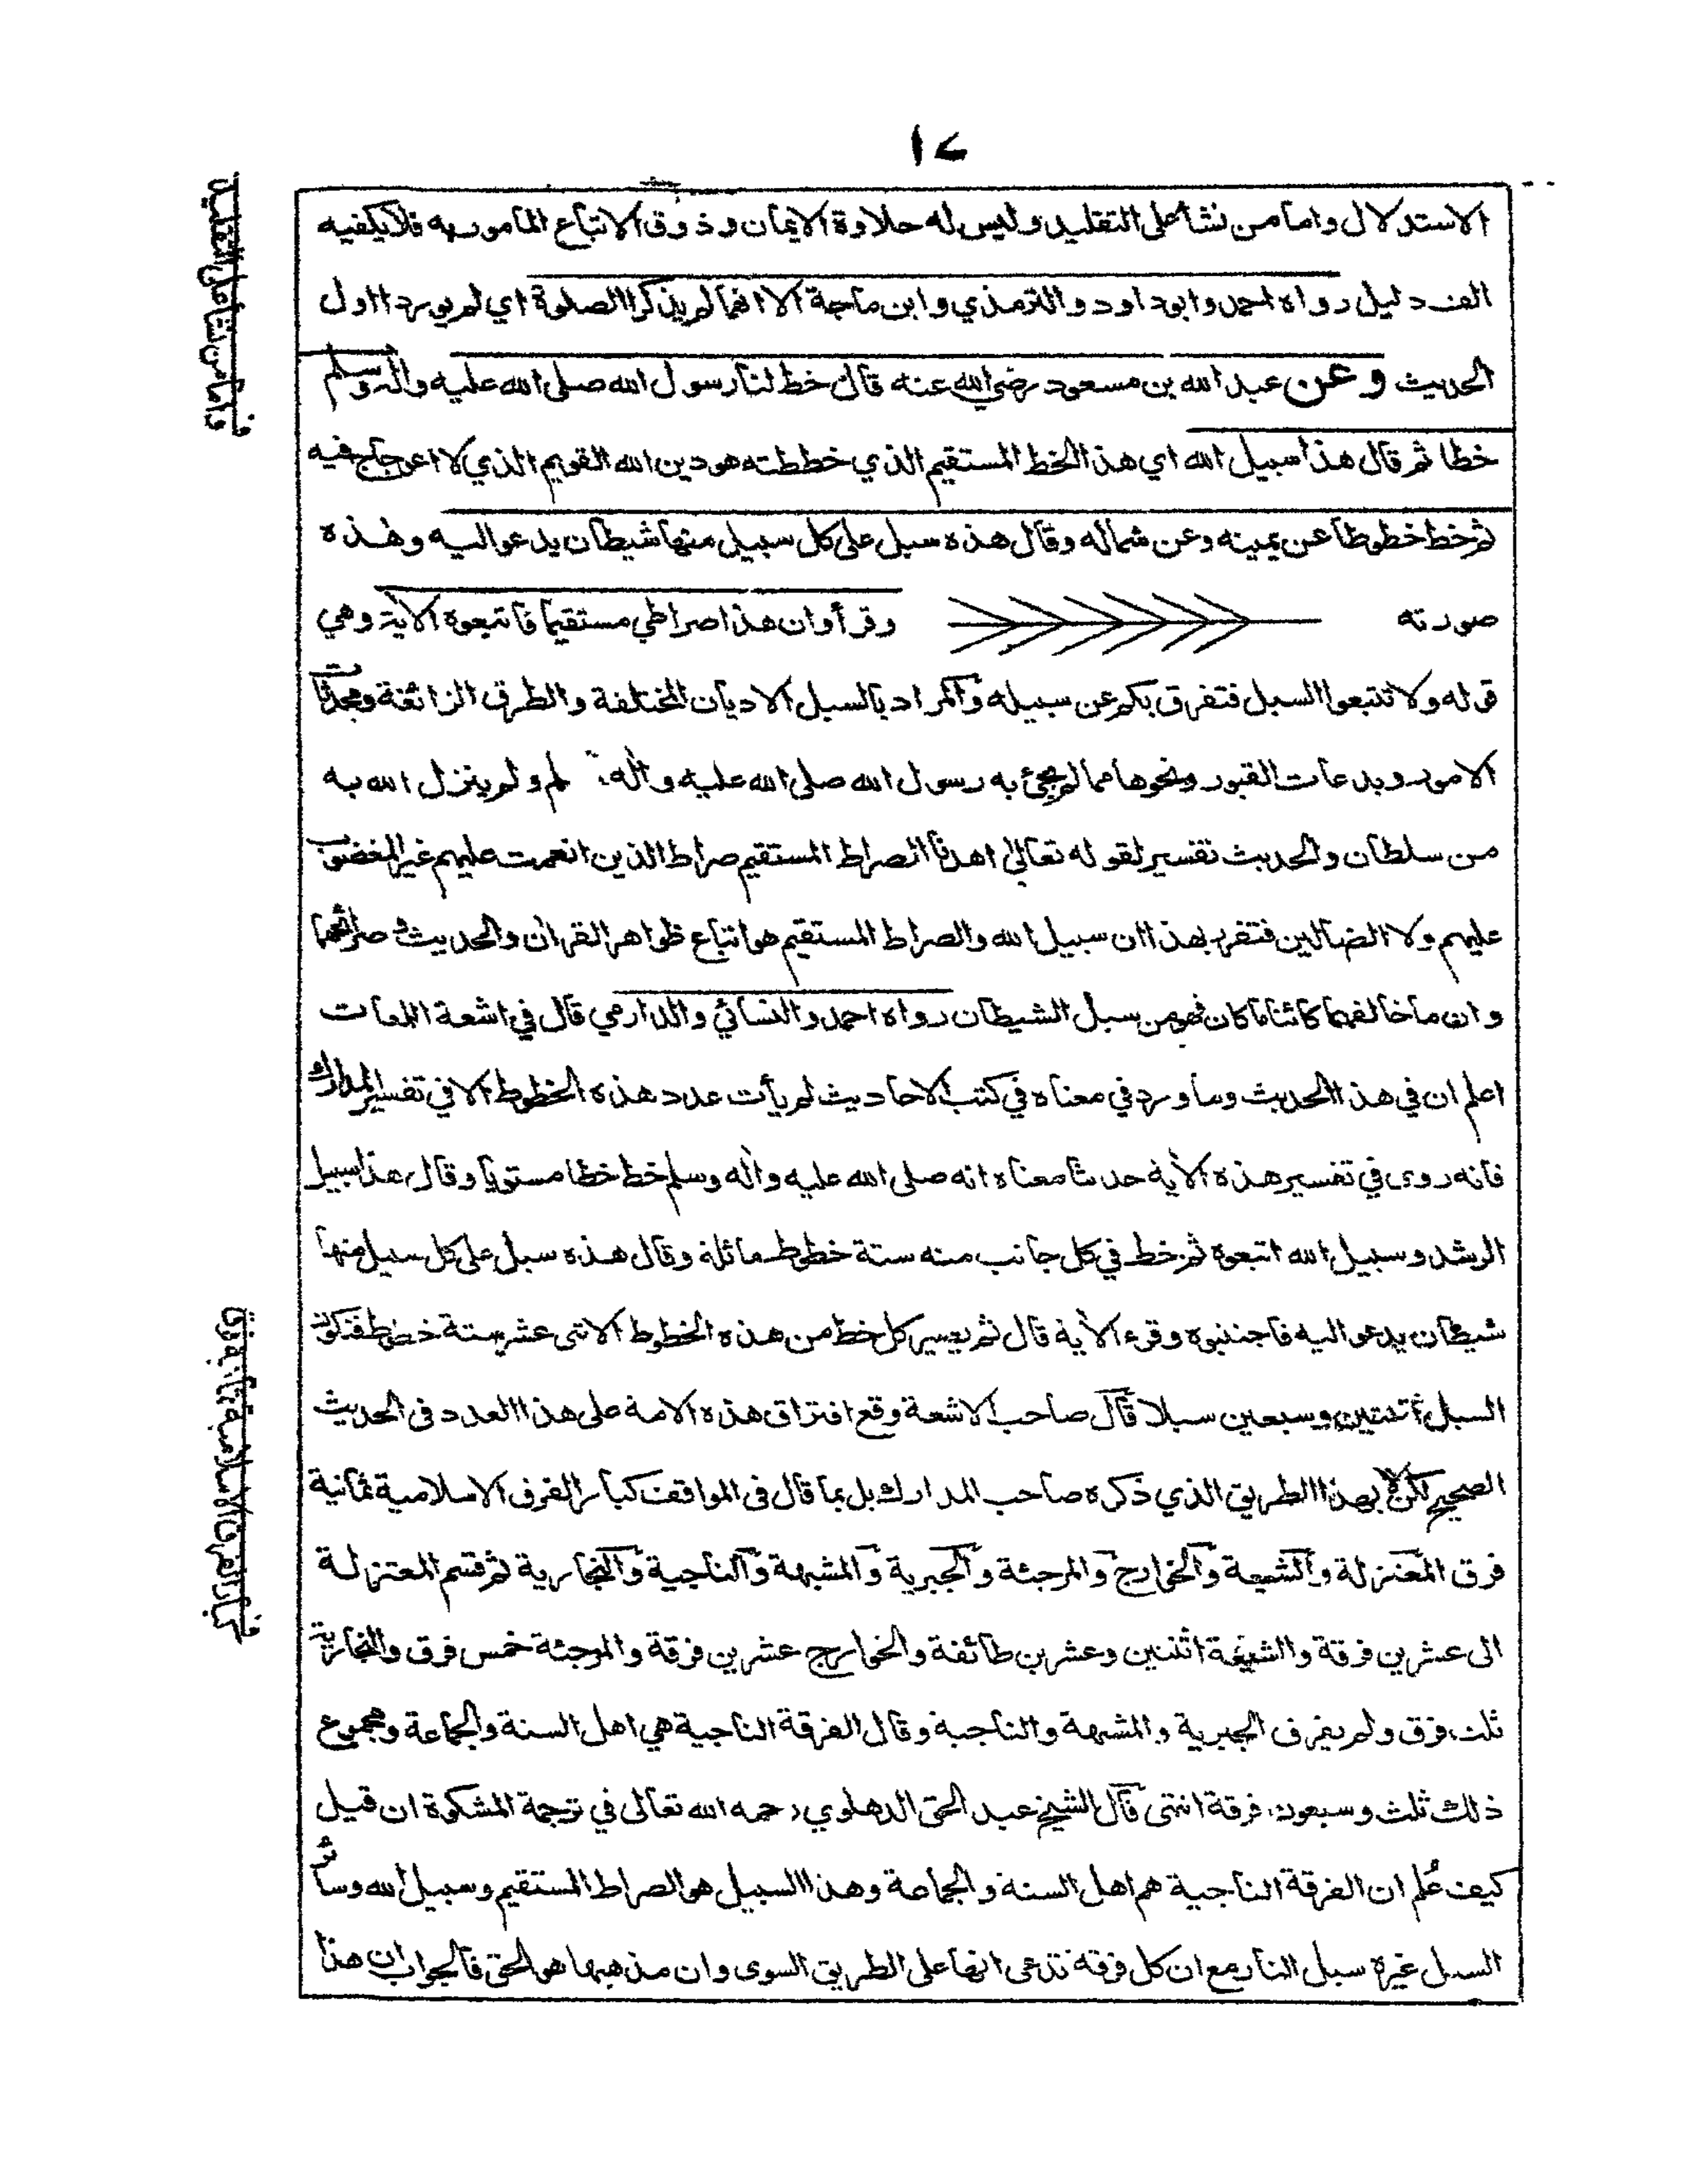 ١٧
الاستدلال واما من نشأ على التقليد وليس له حلاوة الايمان وذوق الاتباع المأمور به فلا يكفيه
الف دليل رواه احمد وابو داود والترمذي وابن ماجة الا انهما لم يذكرا الصلوة اي لم يوردا اول
الحديث وعن عبد الله بن مسعود رضي الله عنه قال خط لنا رسول الله صلى الله عليه واله وسلم
خطا ثم قال هذا سبيل الله اي هذا الخط المستقيم الذي خططته هو دين الله القويم الذي لا اعوجاج فيه
ثم خط خطوطا عن يمينه وعن شماله وقال هذه سبل على كل سبيل منها شيطان يدعو اليه وهذه
صورته وقرأ وان هذا صراطي مستقيما فاتبعوه الاية وهي
قوله ولا تتبعوا السبل فتفرق بكم عن سبيله والمراد بالسبل الاديان المختلفة والطرق الزائغة ومحدثات
الامور وبدعات القبور ونحوها مما لم يجئ به رسول الله صلى الله عليه واله لم ولم ينزل الله به
من سلطان والحديث تفسير لقوله تعالى اهدنا الصراط المستقيم صراط الذين انعمت عليهم غير المغضوب
عليهم ولا الضالين فتقرر بهذا ان سبيل الله والصراط المستقيم هو اتباع ظواهر القران والحديث وصرائحهما
وان ما خالفهما كائنا ما كان فهو من سبل الشيطان رواه احمد والنسائي والدارمي قال في اشعة اللمعات
اعلم ان في هذا الحديث وما ورد في معناه في كتب الاحاديث لم يأت عدد هذه الخطوط الا في تفسير المدارك
فانه روى في تفسير هذه الأية حديثا معناه انه صلى الله عليه واله وسلم خط خطا مستويا وقال هذا سبيل
الرشد وسبيل الله اتبعوه ثم خط في كل جانب منه ستة خطوط مائلة وقال هذه سبل على كل سبيل منها
شيطان يدعو اليه فاجتنبوه وقرء الأية قال ثم يسير كل خط من هذه الخطوط الاثنى عشر ستة خطوط فتكون
السبل اثنتين وسبعين سبيلا قال صاحب الاشعة وقع افتراق هذه الامة على هذا العدد فى الحديث
الصحيح لكن لا بهذا الطريق الذي ذكره صاحب المدارك بل بما قال فى المواقف كبار الفرق الاسلامية ثمانية
فرق المعتزلة والشيعة والخوارج والمرجئة والجبرية والمشبهة والناجية والنجارية ثم قسم المعتزلة
الى عشرين فرقة والشيعة اثنتين وعشرين طائفة والخوارج عشرين فرقة والمرجئة خمس فرق والنجارية
ثلث فرق ولم يفرق الجبرية والمشبهة والناجية وقال الفرقة الناجية هي اهل السنة والجماعة ومجموع
ذلك ثلث وسبعون فرقة انتهى قال الشيخ عبد الحق الدهلوي رحمه الله تعالى في ترجمة المشكوة ان قيل
كيف عُلم ان الفرقة الناجية هم اهل السنة والجماعة وهذا السبيل هو الصراط المستقيم وسبيل الله وسائر
السبل غيره سبل النار مع ان كل فرقة تدعى انها على الطريق السوى وان مذهبها هو الحق فالجواب ان هذا
ف واما من نشأ على التقليد
ف كبار الفرق الاسلامية ثمانية فرق